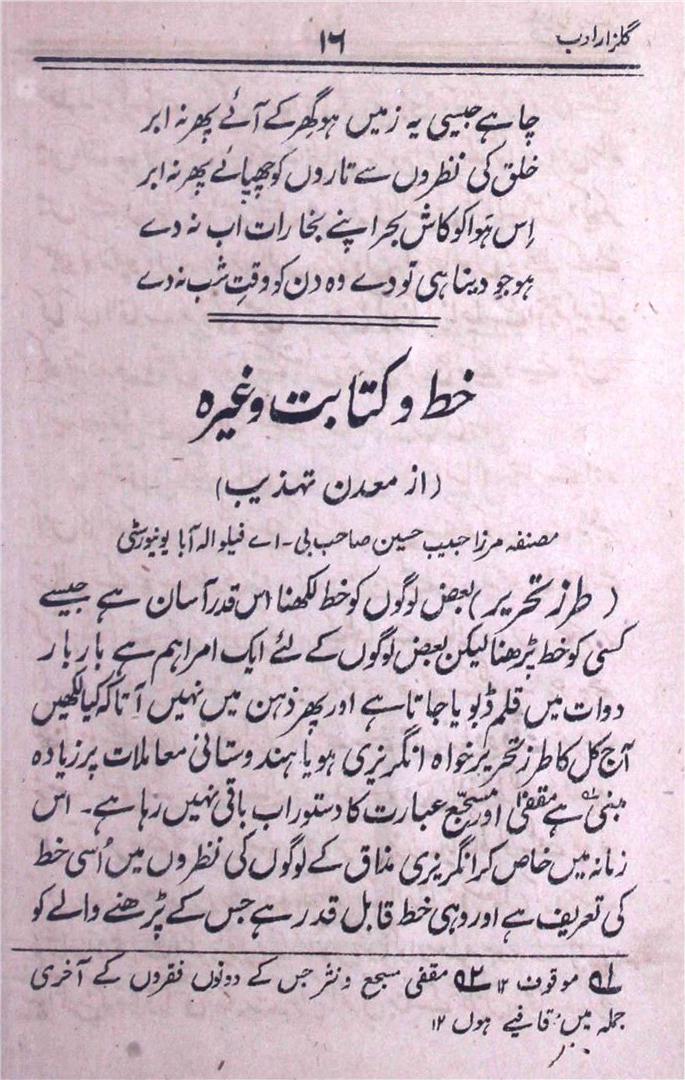 گلزار ادب
۱۶
چاہے جیسی یہ زمیں ہو گھر کے آئے پھر نہ ابر
خلق کی نظروں سے تاروں کو چھپائے پھر نہ ابر
اِس ہَوا کو کاش بحر اپنے بخارات اب نہ دے
ہو جو دینا ہی تو دے وہ دن کو وقتِ شب نہ دے
خط و کتابت وغیرہ
(از معدن تہذیب)
مصنفہ مرزا حبیب حسین صاحب بی-اے فیلو الہ آباد یونیورسٹی
(طرز تحریر) بعض لوگوں کو خط لکھنا اس قدر آسان ہے جیسے
کسی کو خط پڑھنا لیکن بعض لوگوں کے لئے ایک امر اہم ہے بار بار
دوات میں قلم ڈبویا جاتا ہے اور پھر ذہن میں نہیں آتا کہ کیا لکھیں
آج کل کا طرز تحریر خواہ انگریزی ہو یا ہندوستانی معاملات پر زیادہ
مبنی ۱؎ ہے مقفیٰ اور مسجّع ۲؎ عبارت کا دستور اب باقی نہیں رہا ہے۔ اس
زمانہ میں خاص کر انگریزی مذاق کے لوگوں کی نظروں میں اُسی خط
کی تعریف ہے اور وہی خط قابل قدر ہے جس کے پڑھنے والے کو
۱؎ موقوف ۱۲ ۲؎ مقفی مسجع و نثر جس کے دونوں فقروں کے آخری
جملہ میں قافیے ہوں ۱۲